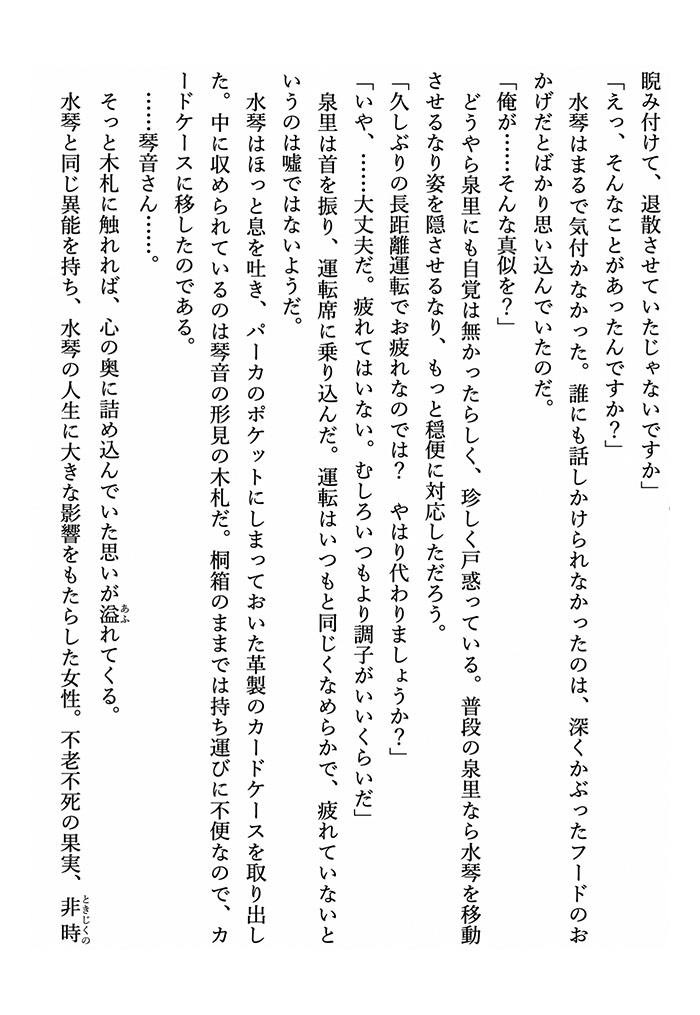 睨み付けて、退散させていたじゃないですか」
「えっ、そんなことがあったんですか？」
　水琴はまるで気付かなかった。誰にも話しかけられなかったのは、深くかぶったフードのお
かげだとばかり思い込んでいたのだ。
「俺が……そんな真似を？」
　どうやら泉里にも自覚は無かったらしく、珍しく戸惑っている。普段の泉里なら水琴を移動
させるなり姿を隠させるなり、もっと穏便に対応しただろう。
「久しぶりの長距離運転でお疲れなのでは？　やはり代わりましょうか？」
「いや、……大丈夫だ。疲れてはいない。むしろいつもより調子がいいくらいだ」
　泉里は首を振り、運転席に乗り込んだ。運転はいつもと同じくなめらかで、疲れていないと
いうのは嘘ではないようだ。
　水琴はほっと息を吐き、パーカのポケットにしまっておいた革製のカードケースを取り出し
た。中に収められているのは琴音の形見の木札だ。桐箱のままでは持ち運びに不便なので、カ
ードケースに移したのである。
　……琴音さん……。
　そっと木札に触れれば、心の奥に詰め込んでいた思いが溢あふれてくる。
　水琴と同じ異能を持ち、水琴の人生に大きな影響をもたらした女性。不老不死の果実、非時ときじくの